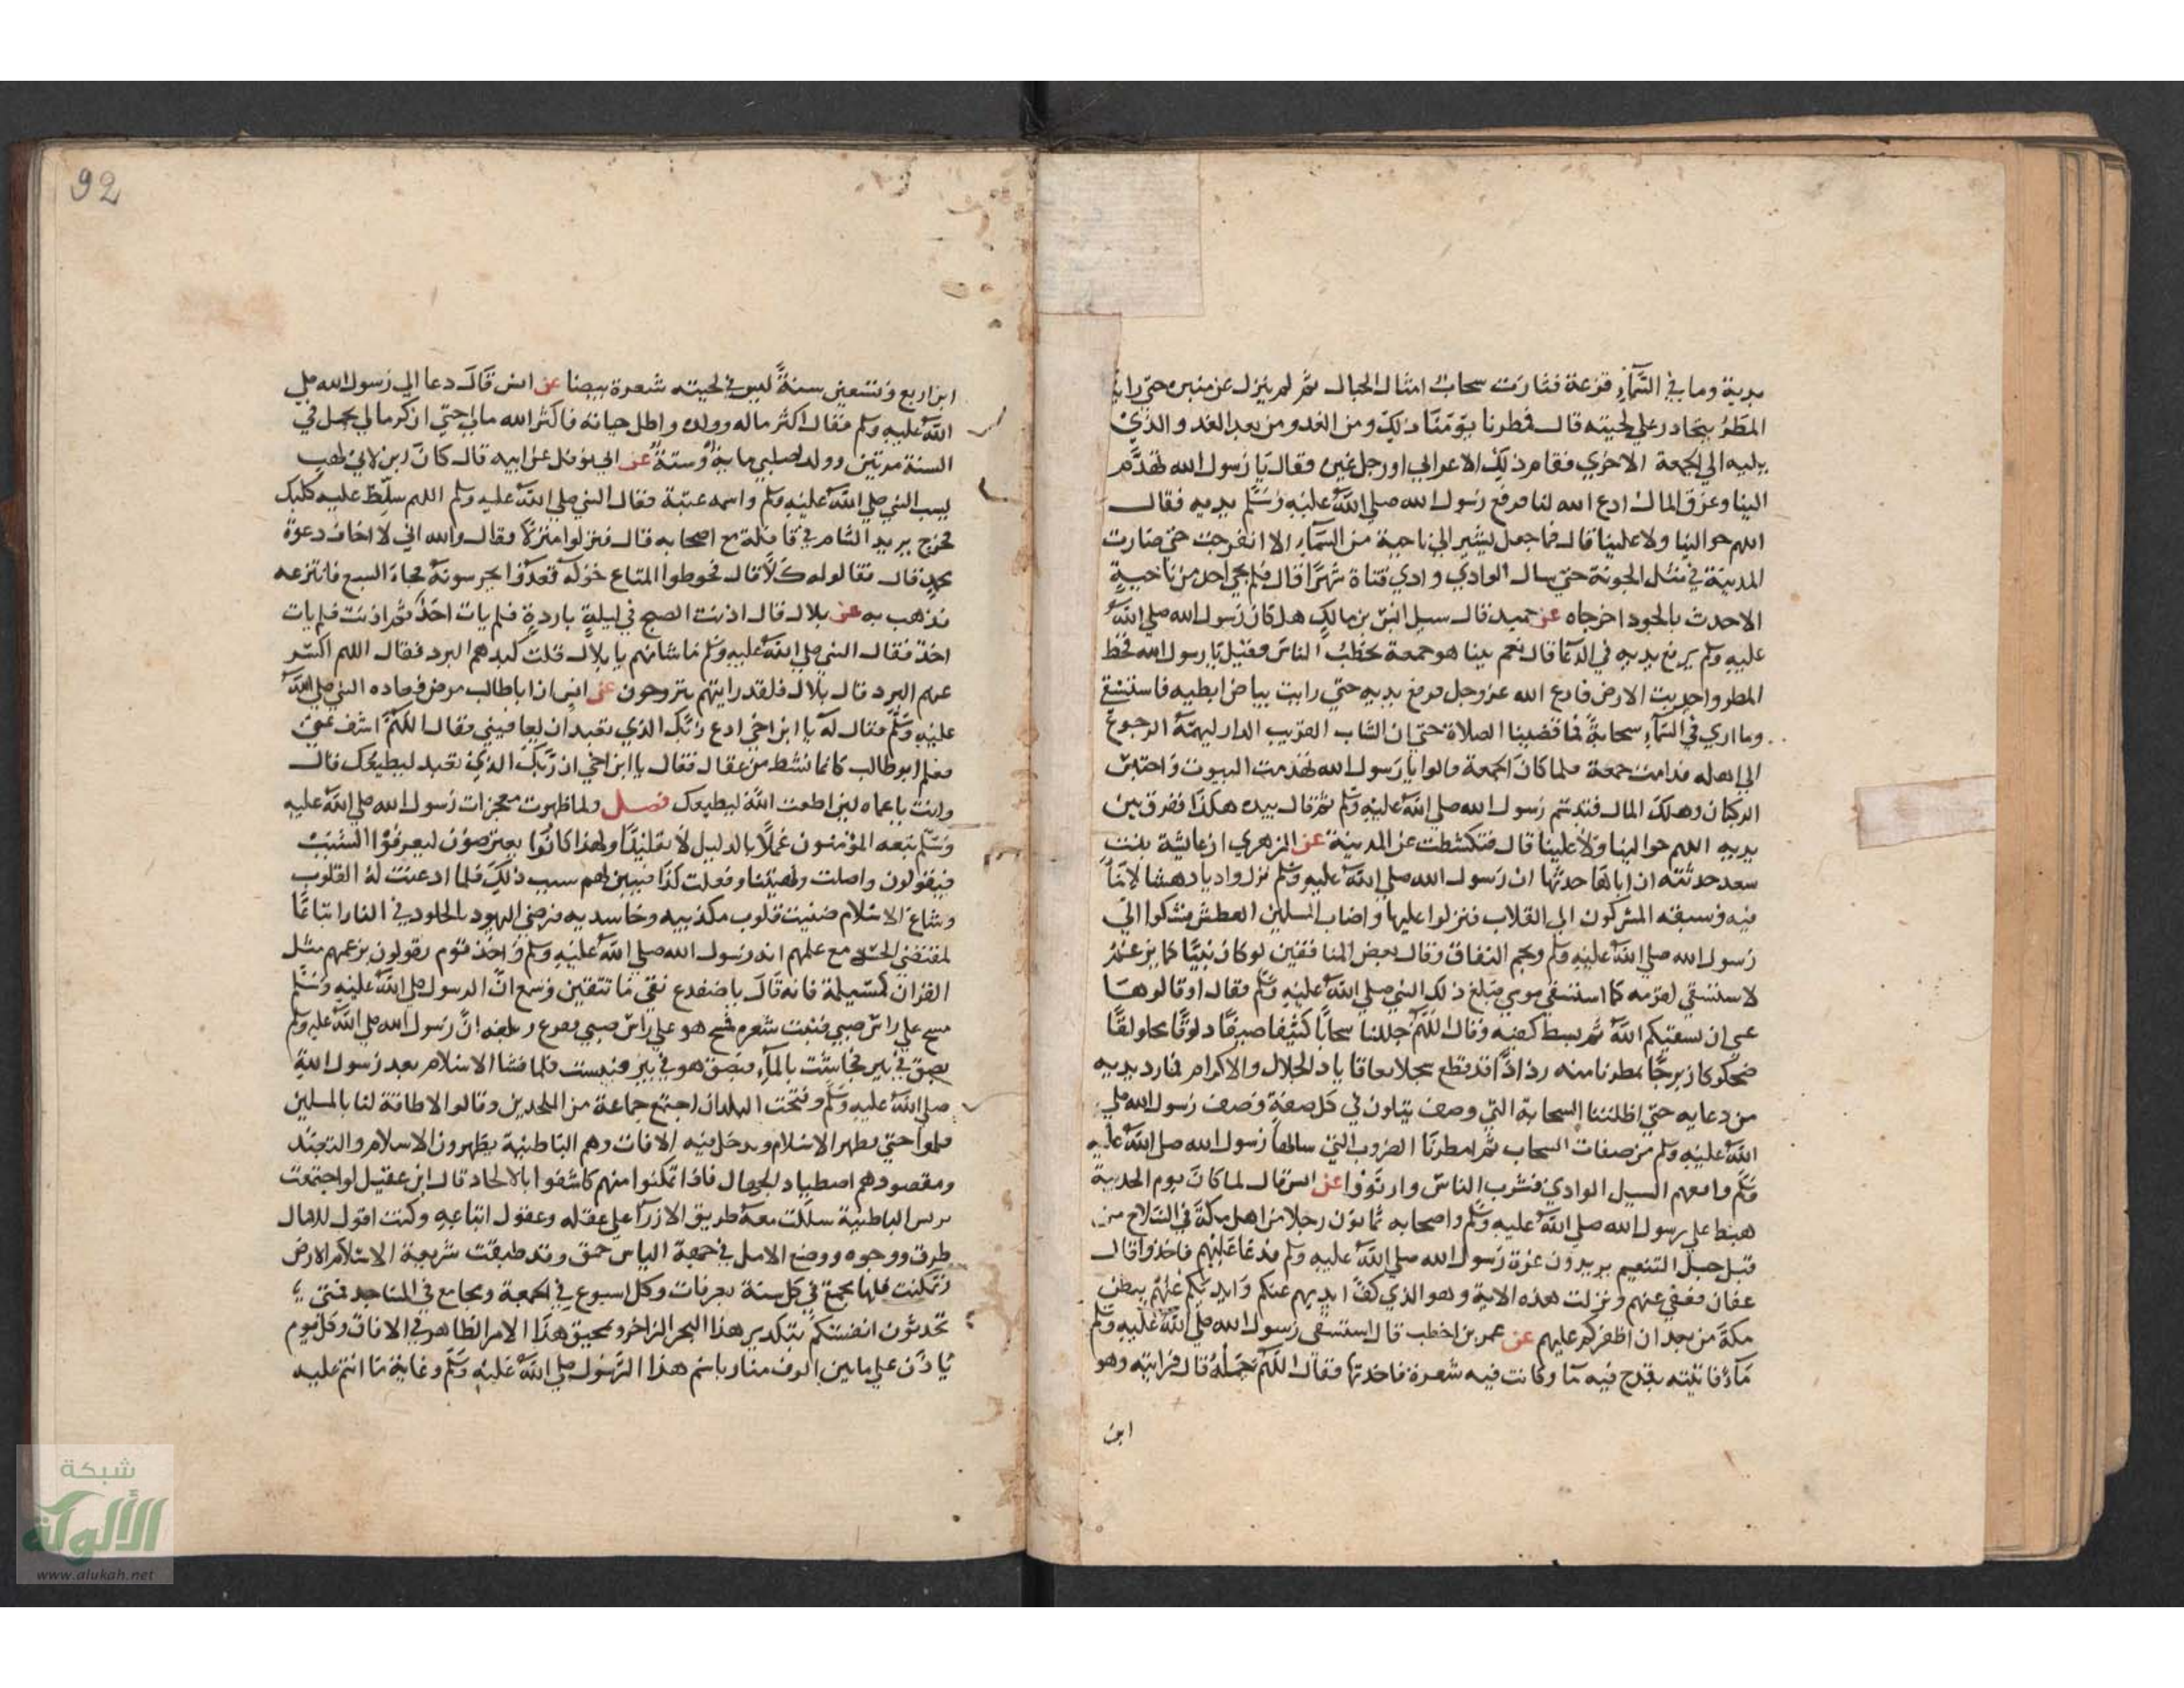 يديه وما في السَّمآءِ قزعة فثارت سحاب امثال الجبال ثم لم ينزل عن منبره حتى راينا
المطَر يتحادر على لحيته قال فمطرنا يوْمَنَا ذلك ومن الغد ومن بعد الغد والذي
يليه الي الجمعة الاخري فقام ذلك الاعرابي او رجل غيره فقال يَا رَسول الله تهدَّم
البنا وغرق المال ادع الله لنا فرفع رَسول الله صلى اللهُ عليْهِ وَسَلَّم يديه فقال
اللهم حوالينا ولا علينا قال فما جعل يشير الي ناحية من السَّمآءِ الا انفرجت حتي صَارت
المدينَة في مثل الجوبة حتي سال الوادي وادي قناة شهرًا قال فلم يجي احد من ناحيةٍ
الا حدث بالجود اخرجاه عن حميد قال سيل انس بن مالكٍ هل كان رَسول الله صلى اللهُ
عليهِ وسلم يرفع يديه في الدعَآ قال نعم بينا هو جمعة يخطبُ الناس فقيل يَا رسول الله قحط
المطر واجدبت الارض فادع الله عز وجل فرفع يديه حتي رايت بياض ابطيه فاستسقى
وما اري في السَّمآءِ سحابةً فما قضينا الصلاة حتي ان الشاب القريب الدار ليهمّهُ الرجوعُ
الي اهله فدامت جمعة فلما كان الجمعة قالوا يا رَسول الله تهدمت البيوت وَاحتبس
الركبان وهلك المال فتبسَّم رَسول الله صلى اللهُ عليْهِ وَسَلم ثم قال بيده هكذا ففرق بين
يديه اللهم حوالينا وَلا علينا قال فتكشطت عن المدينة عن الزهري ان عايشة بنت
سعد حدثته ان اباهَا حدثها ان رَسول الله صلى اللهُ عليهِ وسَلم نزل واديا دهشا لا مَآ
فيه وسبقه المشركون الى القلاب فنزلوا عليها واصاب المسلمين العطش فشكوا الي
رَسول الله صلى اللهُ عليْهِ وسلم ونجم النفاق وقال بعض المنافقين لو كان نبيًّا كما يزعمُ
لاستسقي لقومه كما استسقي موسي فبلغ ذلك النبي صلى اللهُ عليْهِ وسلم فقال اوقالوهَا
عسى ان يسقيكم اللهُ ثم بسط كفيه وقال اللهُمَّ جللنا سحابًا كثيفا صيفًا دلوقًا محلولقًا
ضحوكا زبرجًا تمطرنا منه رذاذًا قطقط سجلا بعاقا يا ذا الجلال والاكرام فما رد يديه
من دعايه حتي اظلتنا السحابة التي وصف يتلون في كل صفةٍ وصف رَسول الله صلى
اللهُ عليْهِ وسلم من صفات السحاب ثم امطرنَا الضروب التي سالها رَسول الله صلى اللهُ عليهِ
وَسَلم وافعم السيل الوادي فشرب الناس وارتَوَوا عن انس قال لما كان يوم الحديبية
هبط على رسول الله صلى اللهُ عليهِ وسَلم واصحابه ثمانون رجلا من اهل مكة في السّلاح من
قبل جبل التنعيم يريدون غرة رَسول الله صلى اللهُ عليهِ وسلم فدعَا عَليهم فاخذوا قال
عفان فعفي عنهم ونزلت هذه الاية وهو الذي كفّ ايديهم عنكم وَايديكم عنهُم ببطن
مكةَ من بعد ان اظفركم عليهم عن عمرو بن اخطب قال استسقى رَسول الله صلى اللهُ عَليهِ وَسَلم
مَآءً فاتيته بقدح فيه مَآ وكانت فيه شعرة فاخذتها فقال اللهُمَّ جَمّلهُ قال فرايته وهو
ابن
92
ابن اربع وَتسعين سنةً ليس في لحيته شعرة بيضا عن انس قَالَ دعا الي رَسول الله صلى
اللهُ عليهِ وسلم فقال اكثر ماله وولده واطل حياته فاكثر الله مالي حتي ان كرما لي يحمل في
السنة مرتين وولد لصلبي مايةٌ وستةٌ عن ابي نوفل عن ابيه قال كان ابن لابي لهب
يسب النبي صلى اللهُ عليْهِ وسلم واسمه عتبة فقال النبي صلى اللهُ عليه وسلم اللهم سلّط عليه كلبك
فخرج يريد الشام في قافلة مع اصحابه قال فنزلوا منزلاً فقال والله اني لا اخاف دعوة
محمدٍ قال فقالوا له كلاَّ قال فحوطوا المتاع حَوله وَقعدُوا يحرسونهُ فجآءَ السبع فانتزعه
فذهب به عن بلال قال اذنت الصبح في ليلةٍ باردةٍ فلم يات احَدٌ ثم اذنت فلم يات
احَد فقال النبي صلى اللهُ عليهِ وسَلم مَا شانهم يا بلال قلت كبدهم البرد فقال اللهم اكسر
عنهم البرد قال بلال فلقد رايتهم يتروحون عن انس ان ابا طالب مرض فعاده النبي صلى اللهُ
عليهِ وَسَلَّم فقال لهُ يا ابن اخي ادع ربَّك الذي تعبد ان يعافيني فقال اللهُمَّ اشف عمي
فقام ابو طالب كانما نشط من عقال فقال يا ابن اخي ان رَبّك الذي تعبد ليطيعك قال
وانت يا عماه لين اطعت اللهَ ليطيعك فصل ولما ظهرت معجزات رَسول الله صلى اللهُ عليهِ
وَسَلّم تبعه المؤمنون عَملاً بالدليل لا تقليدًا ولهذا كانُوا يعترضوْن ليعرفوُا السّبَبْ
فيقولون واصلت ونهيتنا وفعلت كذا فيبين لهم سبب ذلك فلما اذعنت لهُ القلوب
وشاع الاسْلام ضنيت قلوب مكذبيه وحَاسديه فرضي اليهود بالخلود في النار اتباعًا
لمقتضي الحسد مع علمهم انه رَسول الله صلى اللهُ عليْهِ وسلم وَاخذ قوم يقولون بزعمهم مثل
القران كمسَيلمة فانه قَالَ يا ضفدع نقي مَا تنقين وَسمع انّ الرسول صلى اللهُ عليْهِ وَسَلَّم
مسح على راسَ صبي فنبت شعره فمسَح هو على راسَ صبي فقرع وبلغه انَّ رَسول الله صلى اللهُ عليهِ وسلم
بصق في بئير فجاشت بالمآءِ فبصَق هو في بئر فيبست فلما فشا الاسْلام بعد رَسول اللهِ
صلى اللهُ عليهِ وسَلم وَفتحت البلدان اجتمع جماعة من الملحدين وقالوا لا طاقة لنا بالمسلمين
فهلموا حتى نظهر الاسْلام وندخل فيه الافات وهم البَاطنية يظهرون الاسلام والتعبّد
ومقصودهم اصطياد الجهال فاذا تمكنوا منهم كاشفوا بالالحاد قال ابن عقيل لو اجتمعت
برئيس الباطنية سلكت معهُ طريق الازرآءِ على عقله وعقول اتباعهِ وكنت اقول للامال
طرق ووجوه ووضع الامل في جهة الياس حمق وقد طبقت شريعة الاسْلام الارض
وتمكنت فلها مجمع في كل سنة بعرفات وكل اسبوع في الجمعة ومجامع في المسَاجد فمتي
تحدثون انفسَكمُ بتكدير هذا البحر الزاخر وتمحيق هذَا الامر الظاهر في الافاق وَكل يوم
يُاذّن على مايين الوف منار باسم هذا الرّسُول صلى اللهُ عَليْهِ وَسَلَّم وغاية مَا انتم عليه
شبكة
الألوكة
www.alukah.net